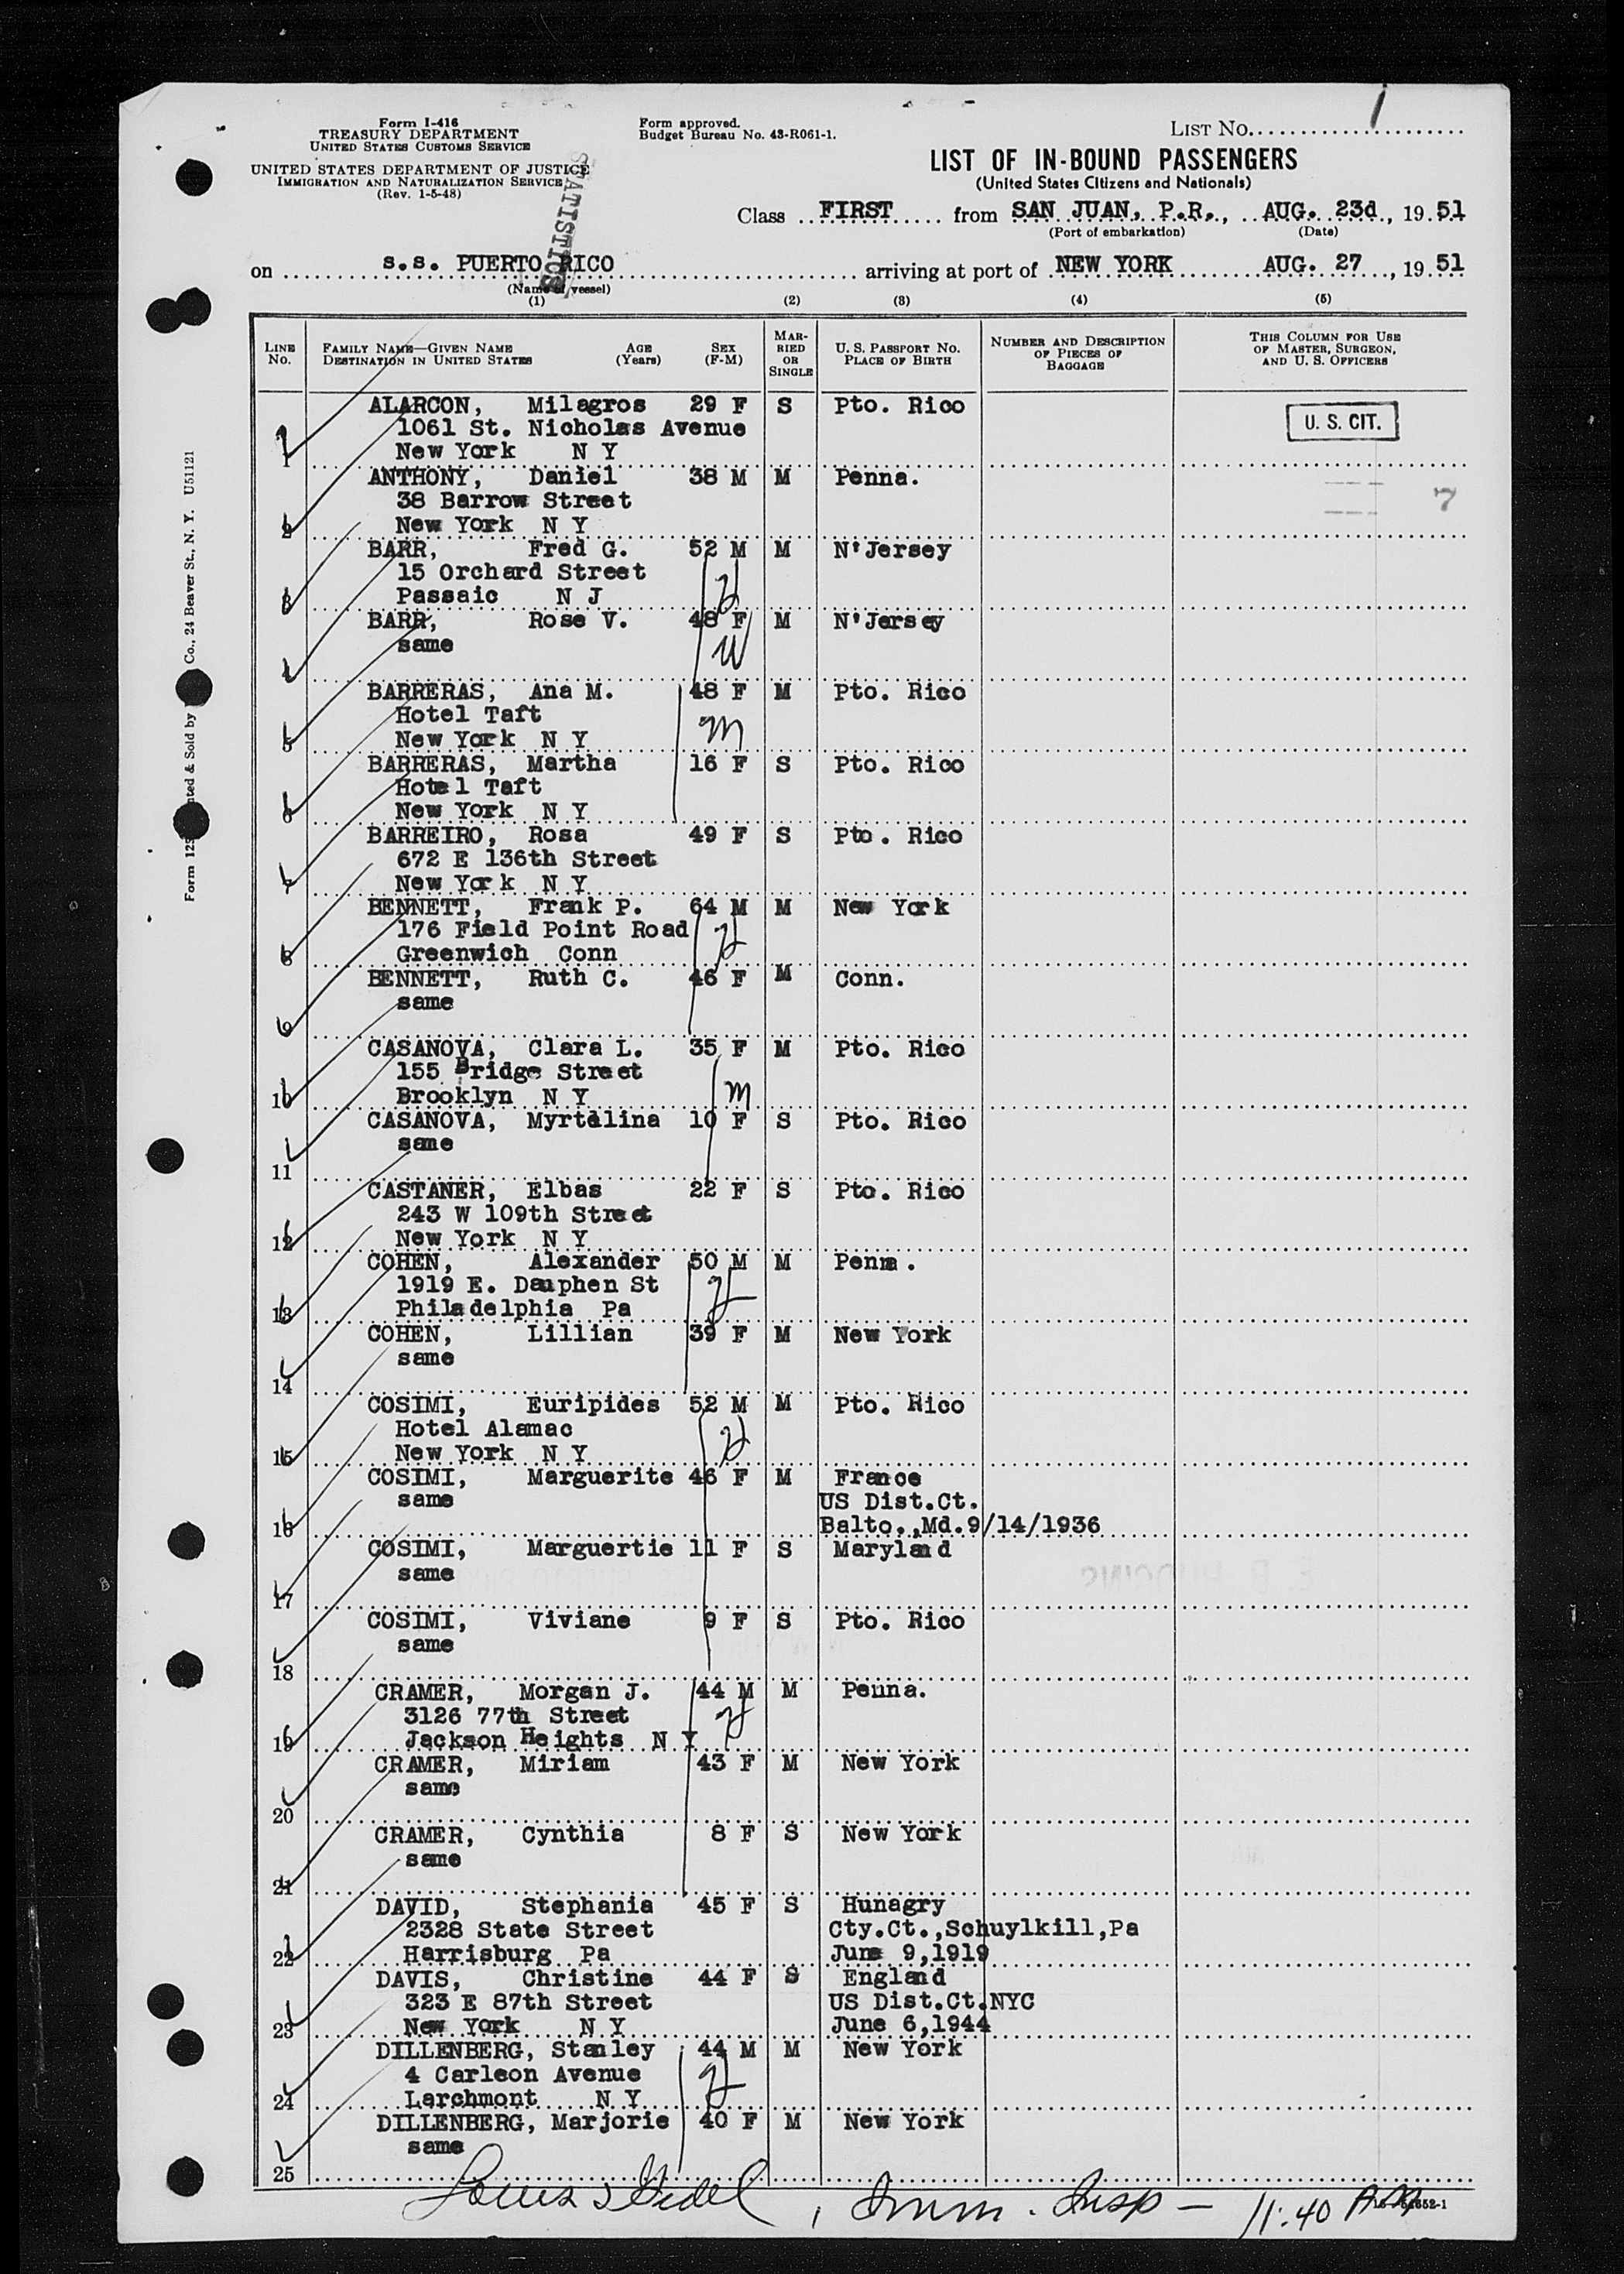 Form I-416
TREASURY DEPARTMENT
UNITED STATES CUSTOMS SERVICE
UNITED STATES DEPARTMENT OF JUSTICE
IMMIGRATION AND NATURALIZATION SERVICE
(Rev. 1-5-48)
STATISTICS
Form approved.
Budget Bureau No. 43-R061-1.
LIST No. 1
LIST OF IN-BOUND PASSENGERS
(United States Citizens and Nationals)
Class FIRST from SAN JUAN, P.R., AUG. 23d, 19 51
(Port of embarkation) (Date)
on s.s. PUERTO RICO arriving at port of NEW YORK AUG. 27, 19 51
(Name of vessel)
(1) (2) (3) (4) (5)
LINE No. FAMILY NAME—GIVEN NAME DESTINATION IN UNITED STATES AGE (Years) SEX (F-M) MARRIED OR SINGLE U. S. PASSPORT NO. PLACE OF BIRTH NUMBER AND DESCRIPTION OF PIECES OF BAGGAGE THIS COLUMN FOR USE OF MASTER, SURGEON, AND U. S. OFFICERS
ALARCON, Milagros 29 F S Pto. Rico U. S. CIT.
1061 St. Nicholas Avenue
1 New York N Y
ANTHONY, Daniel 38 M M Penna.
38 Barrow Street 7
2 New York N Y
BARR, Fred G. 52 M M N'Jersey
15 Orchard Street H
3 Passaic N J
BARR, Rose V. 48 F M N'Jersey
same W
4
BARRERAS, Ana M. 48 F M Pto. Rico
Hotel Taft M
5 New York N Y
BARRERAS, Martha 16 F S Pto. Rico
Hotel Taft
6 New York N Y
BARREIRO, Rosa 49 F S Pto. Rico
672 E 136th Street
7 New York N Y
BENNETT, Frank P. 64 M M New York
176 Field Point Road H
8 Greenwich Conn
BENNETT, Ruth C. 46 F M Conn.
same
9
CASANOVA, Clara L. 35 F M Pto. Rico
155 Bridge Street
10 Brooklyn N Y M
CASANOVA, Myrtelina 10 F S Pto. Rico
same
11
CASTANER, Elbas 22 F S Pto. Rico
243 W 109th Street
12 New York N Y
COHEN, Alexander 50 M M Penna.
1919 E. Dauphen St H
13 Philadelphia Pa
COHEN, Lillian 39 F M New York
same
14
COSIMI, Euripides 52 M M Pto. Rico
Hotel Alamac H
15 New York N Y
COSIMI, Marguerite 46 F M France
same US Dist.Ct.
16 Balto.,Md.9/14/1936
COSIMI, Marguertie 11 F S Maryland
same
17
COSIMI, Viviane 9 F S Pto. Rico
same
18
CRAMER, Morgan J. 44 M M Penna.
3126 77th Street H
19 Jackson Heights N Y
CRAMER, Miriam 43 F M New York
same
20
CRAMER, Cynthia 8 F S New York
same
21
DAVID, Stephania 45 F S Hunagry
2328 State Street Cty.Ct.,Schuylkill,Pa
22 Harrisburg Pa June 9,1919
DAVIS, Christine 44 F S England
323 E 87th Street US Dist.Ct.NYC
23 New York N Y June 6,1944
DILLENBERG, Stanley 44 M M New York
4 Carleon Avenue H
24 Larchmont N Y
DILLENBERG, Marjorie 40 F M New York
same
25
Louis, Imm. Insp — 11:40 AM
Co., 24 Beaver St., N. Y. U51121
& Sold by
Form